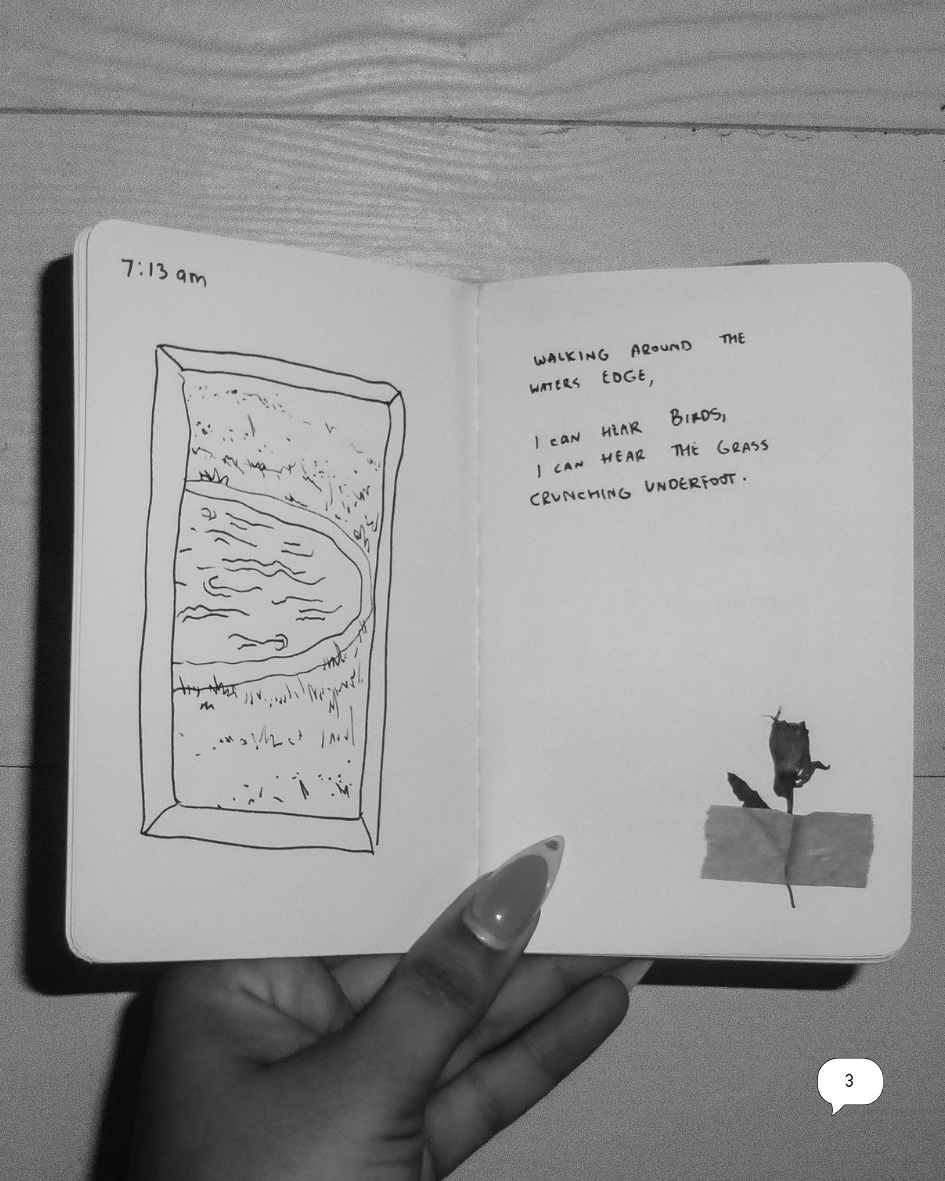 7:13 am
WALKING AROUND THE
WATERS EDGE,
I CAN HEAR BIRDS,
I CAN HEAR THE GRASS
CRUNCHING UNDERFOOT.
3